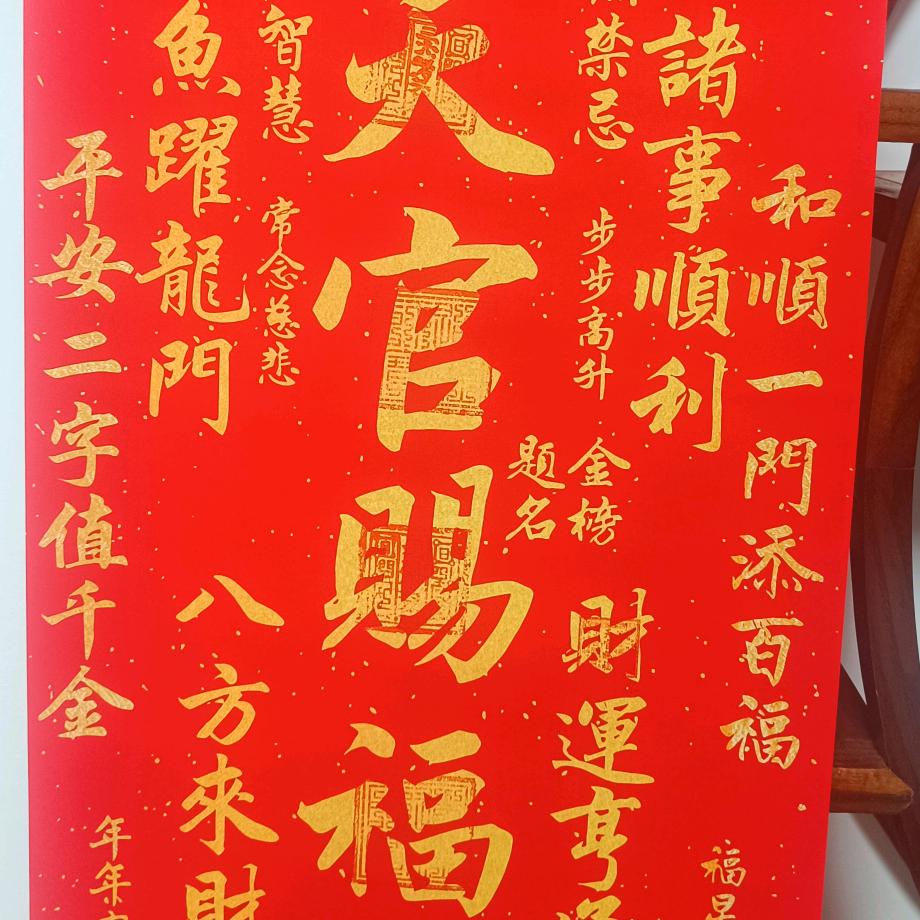 和順一門添百福
諸事順利
禁忌
步步高升
金榜
題名
財運亨
福星
天官賜福
智慧
常念慈悲
魚躍龍門
八方來財
平安二字值千金
年年